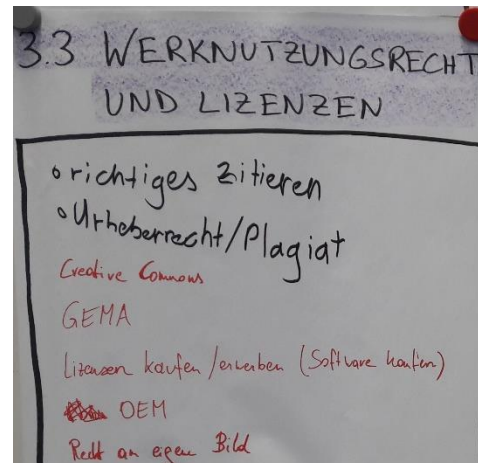 3.3 WERKNUTZUNGSRECHT
UND LIZENZEN
o richtiges Zitieren
o Urheberrecht/Plagiat
Creative Commons
GEMA
Lizenzen kaufen/erwerben (Software kaufen)
OEM
Recht an eigen Bild